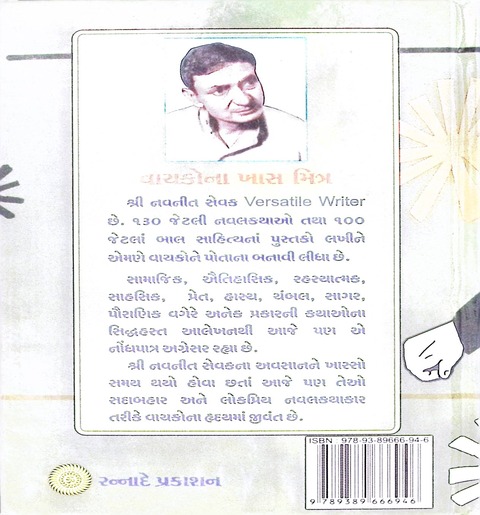 વાચકોના ખાસ મિત્ર
શ્રી નવનીત સેવક Versatile Writer
છે. ૧૩૦ જેટલી નવલકથાઓ તથા ૧૦૦
જેટલાં બાલ સાહિત્યનાં પુસ્તકો લખીને
એમણે વાચકોને પોતાના બનાવી લીધા છે.
સામાજિક, ઐતિહાસિક, રહસ્યાત્મક,
સાહસિક, પ્રેત, હાસ્ય, ચંબલ, સાગર,
પૌરાણિક વગેરે અનેક પ્રકારની કથાઓના
સિદ્ધહસ્ત આલેખનથી આજે પણ એ
નોંધપાત્ર અગ્રેસર રહ્યા છે.
શ્રી નવનીત સેવકના અવસાનને ખાસ્સો
સમય થયો હોવા છતાં આજે પણ તેઓ
સદાબહાર અને લોકપ્રિય નવલકથાકાર
તરીકે વાચકોના હૃદયમાં જીવંત છે.
ISBN 978-93-89666-94-6
9 789389 666946
રન્નાદે પ્રકાશન